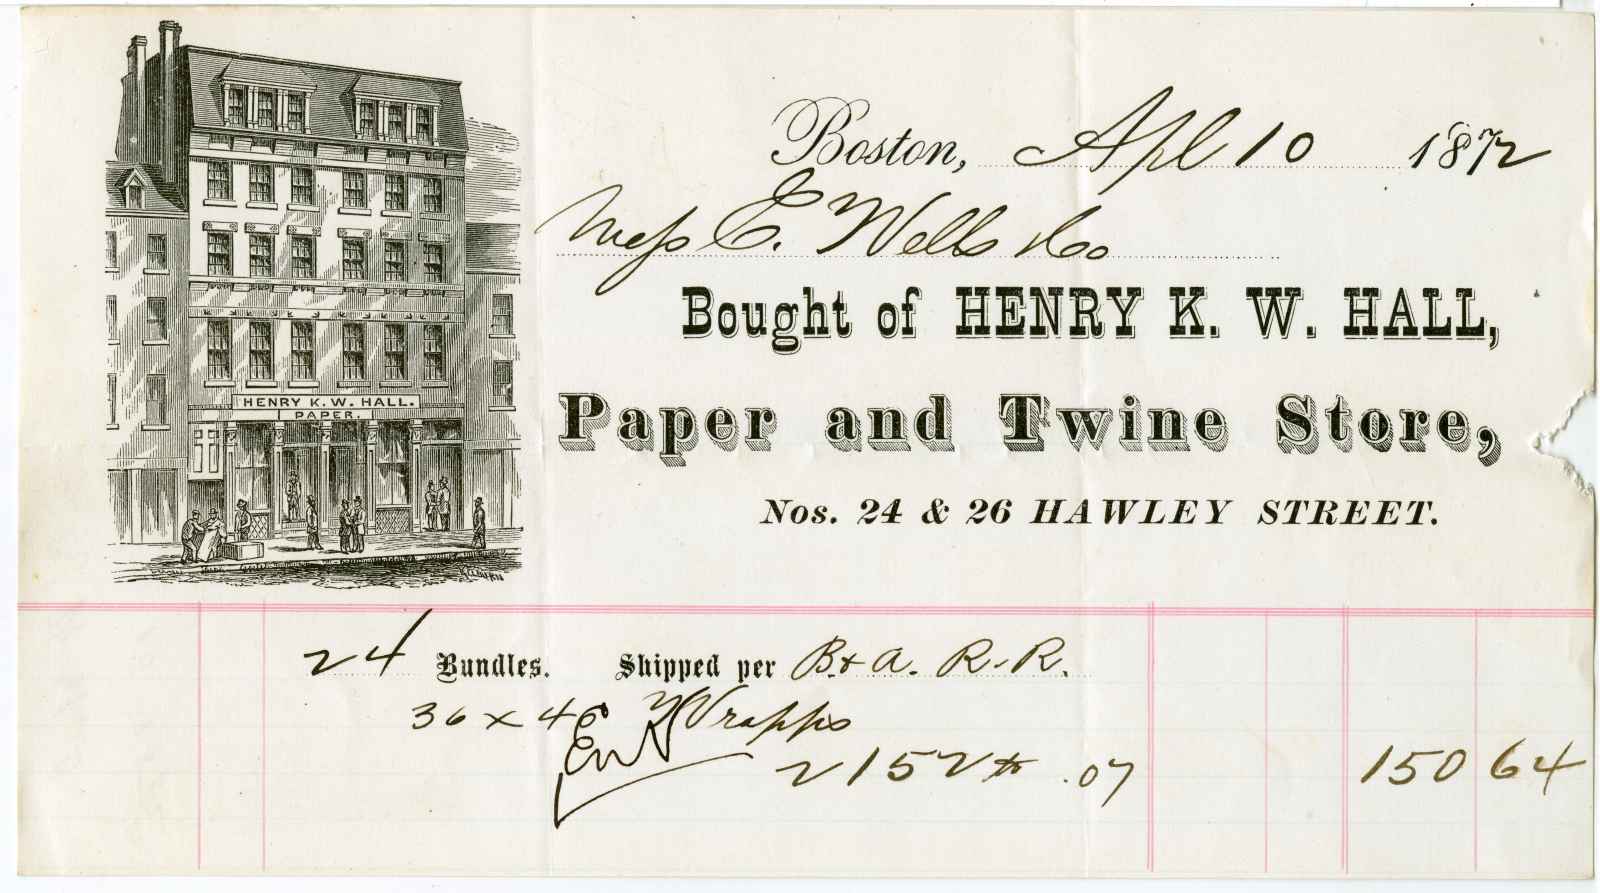 HENRY K. W. HALL.
PAPER.
Boston, Apl 10 1872
Mess E. Wells & Co
Bought of HENRY K. W. HALL,
Paper and Twine Store,
Nos. 24 & 26 HAWLEY STREET.
24 Bundles. Shipped per B & A. R. R.
36 x 46 Wrapps
2152 lb .07 150 64